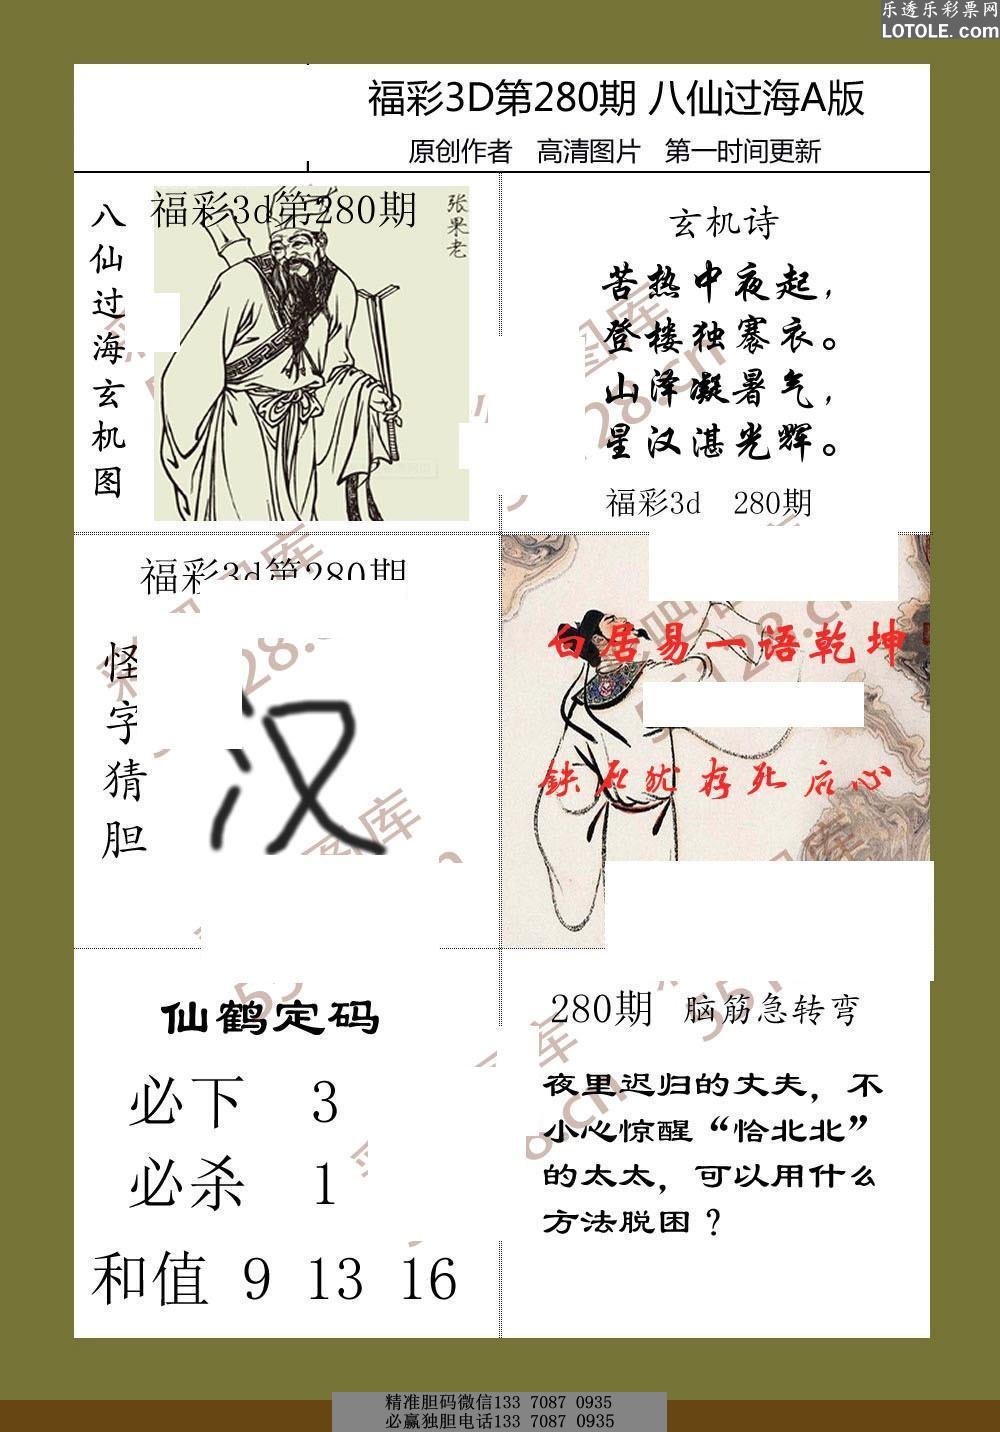 乐透乐彩票网
LOTOLE.com
福彩3D第280期 八仙过海A版
原创作者 高清图片 第一时间更新
八仙过海玄机图
福彩3d第280期
张果老
玄机诗
苦热中夜起，
登楼独褰衣。
山泽凝暑气，
星汉湛光辉。
福彩3d 280期
福彩3d第280期
怪字猜胆
汉
白居易一语乾坤
鉄石犹存死后心
仙鹤定码
必下 3
必杀 1
和值 9 13 16
280期 脑筋急转弯
夜里迟归的丈夫，不
小心惊醒“恰北北”
的太太，可以用什么
方法脱困？
精准胆码微信133 7087 0935
必赢独胆电话133 7087 0935